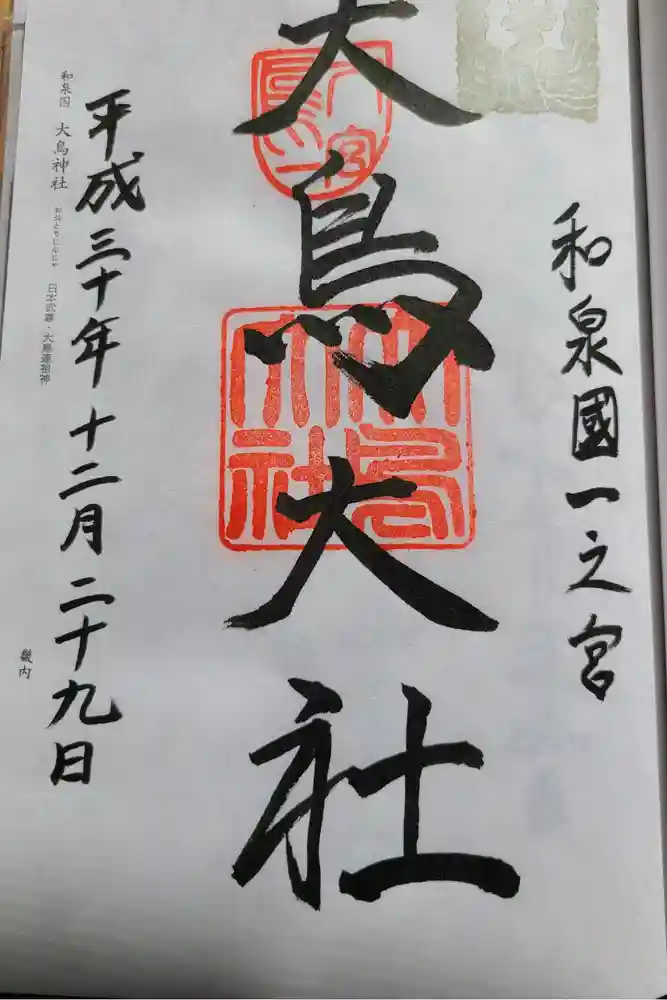 和泉國一之宮
大鳥大社
平成三十年十二月二十九日
和泉国 大鳥神社 おおとりじんじゃ 日本武尊・大鳥連祖神
畿内
大鳥大社